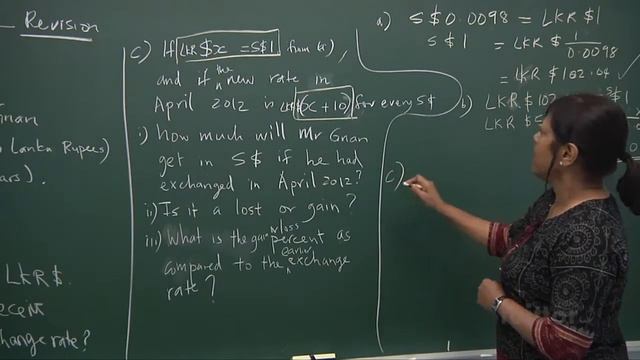 Revision
nnan
Lanka Rupees)
ars).
LKR$.
ecent
change rate?
c) If LKR $x = S$1 from (a),
and if the new rate in
April 2012 is LKR$(x + 10) for every S$
i) How much will Mr Gnan
get in S$ if he had
exchanged in April 2012?
ii) Is it a lost or gain?
iii) What is the gain/loss percent as
compared to the earlier exchange
rate?
a) S$0.0098 = LKR $1
S$1 = LKR $ 1/0.0098
= LKR $102.04
b) LKR $102
LKR $5
c)